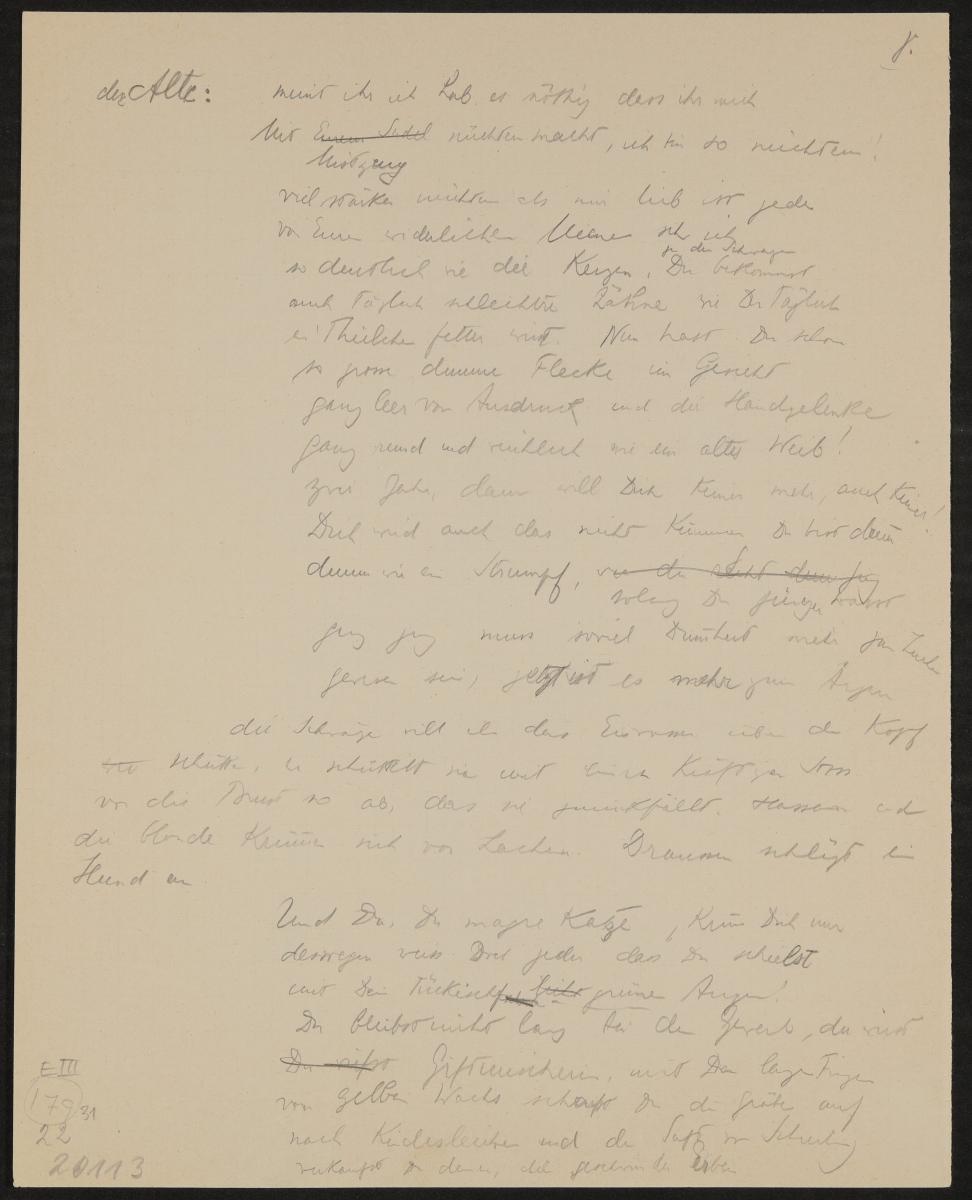 8.
der Alte: meint ihr ich hab es nöthig dass ihr mich
Mit Eurem Sudel nüchtern macht, ich bin so nüchtern!
Mistzeug
viel stärker nüchtern als mir lieb ist jeder
von Euren widerlichen seh ich
zu der Schwarzen
so deutlich wie die Kerzen. Du bekommst
auch täglich schlechtre Zähne wie Du täglich
ein Theilchen fetter wirst. Nun hast Du schon
so grosse dumme Flecke im Gesicht
ganz leer von Ausdruck und die Handgelenke
ganz rund und weichlich wie ein altes Weib!
zwei Jahr, dann will Dich keiner mehr, auch keiner!
Dich wird auch das nicht kümmern Du bist dann
dumm wie ein Strumpf,
solang Du jünger warst
muss soviel Dummheit mehr zum Lachen
gewesen sein, jetzt ist es mehr zum Ärgern
die Schwarze will ihm das Eiswasser über den Kopf
schütten, er schüttelt sie mit einem kräftigen Stoss
vor die Brust so ab, dass sie zurückfällt. Hassan und
die blonde krümmen sich vor Lachen. Draussen schlägt ein
Hund an.
Und Du, Du magre Katze,
deswegen weiss Doch jeder dass Du schielst
mit Dein tückisch grünen Augen!
Du bleibst nicht lang bei dem Gewerb, du wirst
Giftmischerin, mit Den langen Fingern
von gelbem Wachs scharrst Du die Gräber auf
nach Kindesleichen und den Saft
verkaufst Du denen, die geschwinder erben
E III
179 31
22
20113